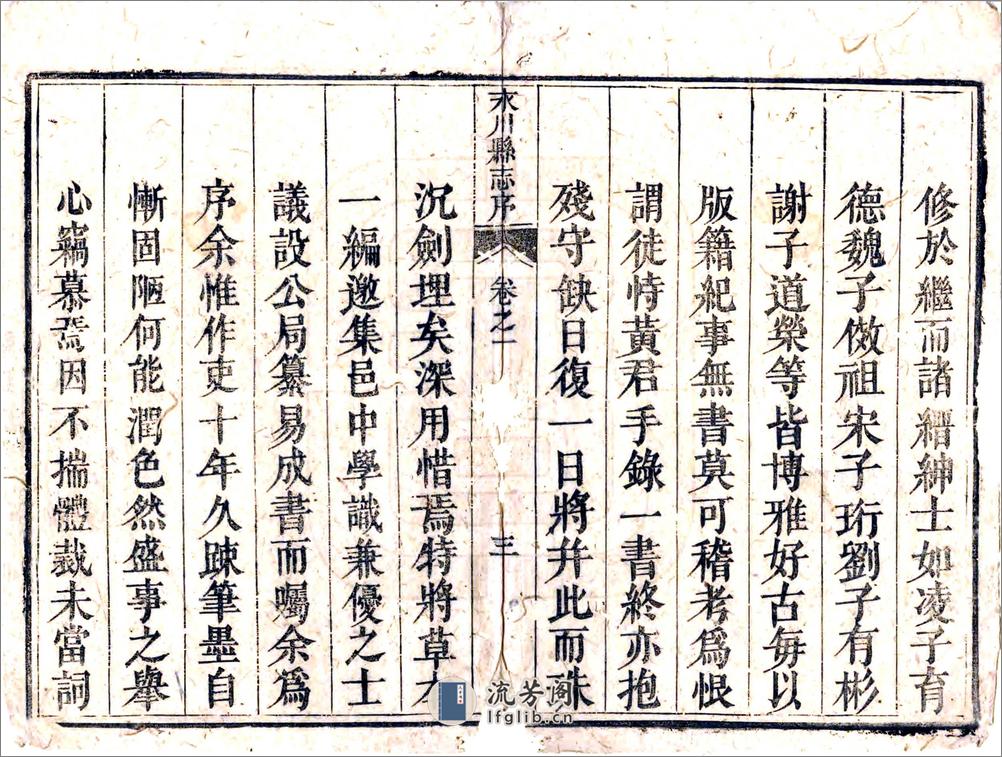 修於繼而諸縉紳士如凌子育
德魏子倣祖宋子珩劉子有彬
謝子道榮等皆博雅好古每以
版籍紀事無書莫可稽考為恨
謂徒恃黃君手錄一書終亦抱
殘守缺日復一日將并此而珠
永川縣志序
卷之一
三
沉劍埋矣深用惜焉特將草本
一編邀集邑中學識兼優之士
議設公局纂易成書而囑余為
序余惟作吏十年久踈筆墨自
慚固陋何能潤色然盛事之舉
心竊慕焉因不揣體裁未當詞
流芳阁
lfglib.cn